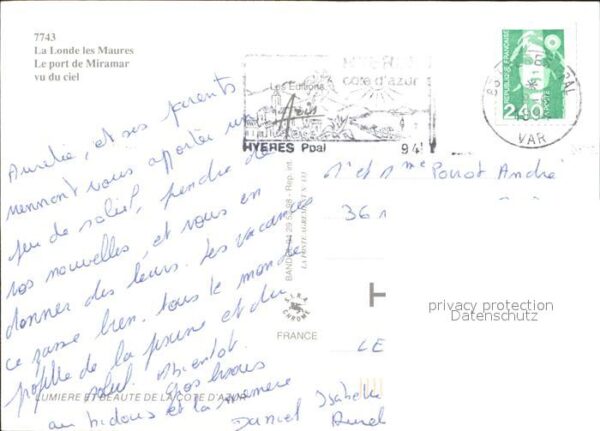 7743
La Londe les Maures
Le port de Miramar
vu du ciel
Aurélie, et ses parents
viennent vous apporter un
peu de soleil, prendre de
vos nouvelles, et vous en
donner des leurs. Les vacances
ce passe bien. tous le monde
profite de la piscine et du
soleil. Abientot.
Gros bisous
au bidous et la memere
Daniel Isabelle
Aurel
LUMIERE ET BEAUTE DE LA COTE D'AZUR
Les Editions
côte d'azur
HYERES Ppal
94
REPUBLIQUE FRANÇAISE
2,40
VAR
Mr et Mme Poirot André
36
LE
FRANCE
privacy protection
Datenschutz